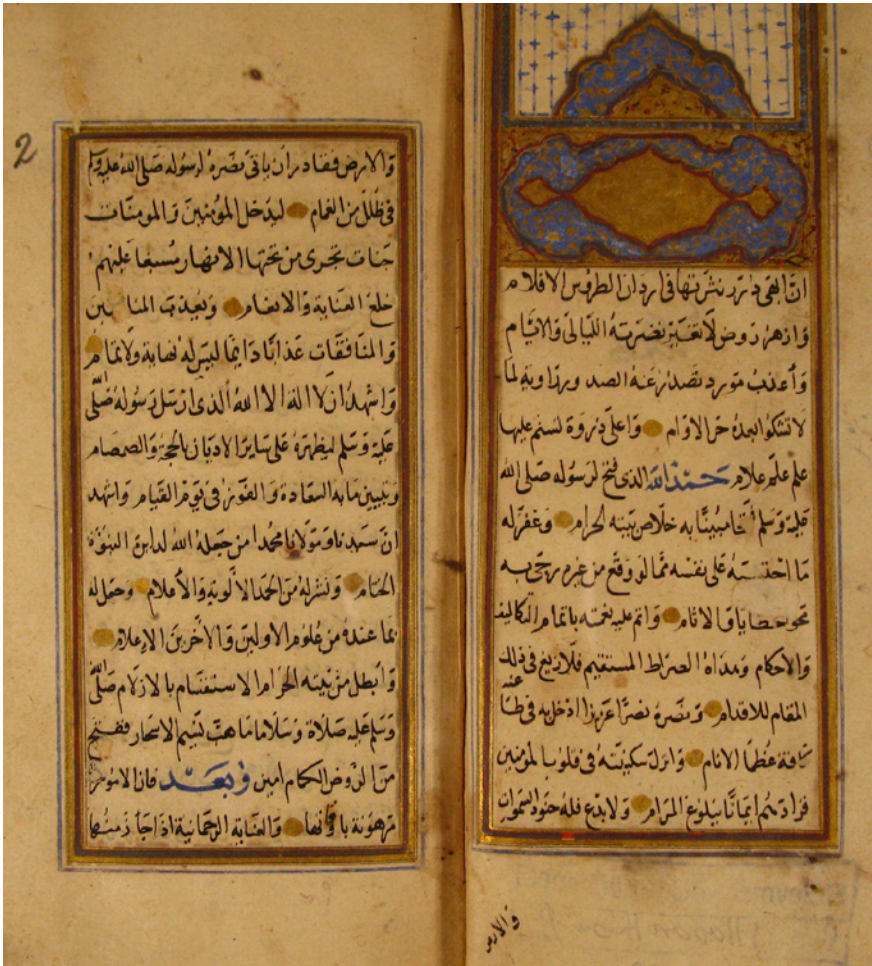 ان ابهى درر نثرتها فى اردان الطروس الاقلام
وازهر روض لا تغير نضرته الليالى والايام
واعذب مورد تصدر عنه الصد ورواية لما
لا تشكوا بعده حر الاوام واعلى ذروة تسنم عليها
علم علم علام حمد الله الذى فتح لرسوله صلى الله
عليه وسلم فتحا مبينا به خلاص بيته الحرام وغفر له
ما احتسبه على نفسه مما لو وقع من غيره رجى به
محو خطايا والاثام واتم عليه نعمته باتمام التكاليف
والاحكام وهداه الصراط المستقيم فلا زيغ فى ذلك
المقام للاقدام ونصره نصرا عزيزا ادخل به فى طاعته
كافة عظما الانام وانزل سكينته فى قلوب المومنين
فزادهم ايمانا ببلوغ المرام ولا بدع فله جنود السموات
والارض
2
والارض فقادر ان ياتى بنصره لرسوله صلى الله عليه وسلم
فى ظلل من الغمام ليدخل المؤمنين والمومنات
جنات تجرى من تحتها الانهار مسبغا عليهم
خلع العناية والانعام ويعذب المنافقين
والمنافقات عذابا دايما ليس له نهاية ولا تمام
واشهد ان لا اله الا الله الذى ارسل رسوله صلى الله
عليه وسلم ليظهره على ساير الاديان بالحجة والصمصام
وتبيين ما به السعادة والفوز فى يوم القيام واشهد
ان سيدنا ومولانا محمدا من جعله الله لدايرة النبوة
الختام ونشر له من الحمد الالوية والاعلام وجعل له
مما عنده من علوم الاولين والآخرين الاعلام
وابطل من بيته الحرام الاستقسام بالازلام صلى الله
وسلم عليه صلاة وسلاما ما هب نسيم الاسحار ففتح
من الروض الكمام امين وبعد فان الامور
مرهونة باوقاتها والعناية الرحمانية اذا جا زمنها